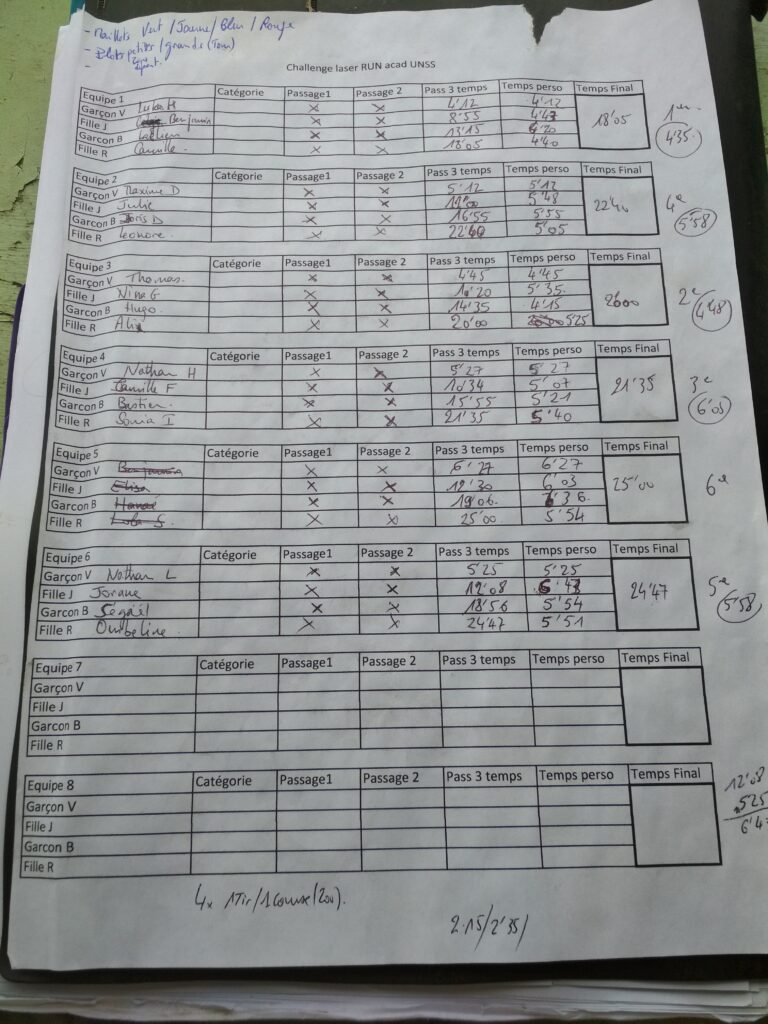 - Maillots Vert / Jaune / Bleu / Rouge
- Plots petits / grands (Tour)
-
Challenge laser RUN acad UNSS
Equipe 1 Catégorie Passage1 Passage 2 Pass 3 temps Temps perso Temps Final
Garçon V x x 4'12 4'12 18'05 1er
Fille J Benjamin x x 8'55 4'43 4'35
Garcon B x x 13'15 4'20
Fille R Camille x x 18'05 4'40
Equipe 2 Catégorie Passage1 Passage 2 Pass 3 temps Temps perso Temps Final
Garçon V Maxime D x x 5'12 5'12 22'40 4e
Fille J Julie x x 11'00 5'48 5'58
Garcon B Boris D x x 16'55 5'55
Fille R Leonore x x 22'40 5'05
Equipe 3 Catégorie Passage1 Passage 2 Pass 3 temps Temps perso Temps Final
Garçon V Thomas x x 4'45 4'45 20'00 2e
Fille J Nina G x x 10'20 5'35 4'48
Garcon B Hugo x x 14'35 4'15
Fille R x x 20'00 5'25
Equipe 4 Catégorie Passage1 Passage 2 Pass 3 temps Temps perso Temps Final
Garçon V Nathan H x x 5'27 5'27 21'35 3e
Fille J Camille F x x 10'34 5'07 6'03
Garcon B Bastien x x 15'55 5'21
Fille R Sonia I x x 21'35 5'40
Equipe 5 Catégorie Passage1 Passage 2 Pass 3 temps Temps perso Temps Final
Garçon V x x 6'27 6'27 25'00 6e
Fille J Elisa x x 12'30 6'03
Garcon B x x 19'06 6'36
Fille R Lola S. x x 25'00 5'54
Equipe 6 Catégorie Passage1 Passage 2 Pass 3 temps Temps perso Temps Final
Garçon V Nathan L x x 5'25 5'25 24'47 5e
Fille J Jorane x x 12'08 6'43 5'58
Garcon B Segaël x x 18'56 5'54
Fille R Ombeline x x 24'47 5'51
Equipe 7 Catégorie Passage1 Passage 2 Pass 3 temps Temps perso Temps Final
Garçon V
Fille J
Garcon B
Fille R
Equipe 8 Catégorie Passage1 Passage 2 Pass 3 temps Temps perso Temps Final
Garçon V 12'08
Fille J 525
Garcon B 6'4
Fille R
4x 1Tir/1 Course(200).
2.15/2'35/